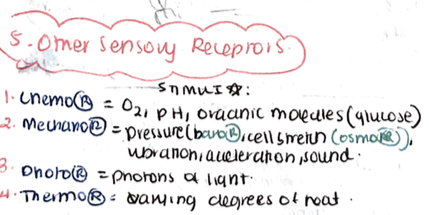 5. Other Sensory Receptors
Stimuli ☆:
1. Chemo Ⓡ = O2, pH, organic molecules (glucose)
2. Mechano Ⓡ = pressure (baro Ⓡ), cell stretch (osmo Ⓡ),
vibration, acceleration, sound.
3. Photo Ⓡ = photons of light.
4. Thermo Ⓡ = varying degrees of heat.